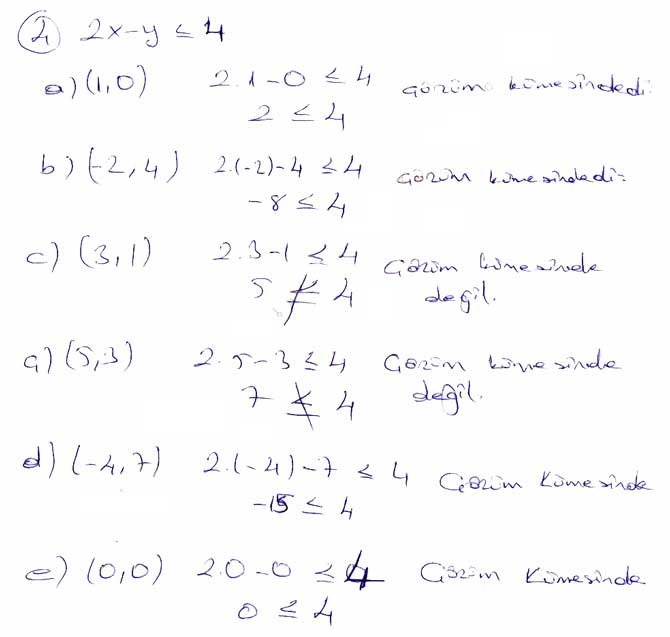 2) 2x-y ≤ 4
a) (1,0) 2.1-0 ≤ 4 Çözüm kümesindedir
2 ≤ 4
b) (-2,4) 2.(-2)-4 ≤ 4 Çözüm kümesindedir
-8 ≤ 4
c) (3,1) 2.3-1 ≤ 4 Çözüm kümesinde
5 ≰ 4 değil.
ç) (5,3) 2.5-3 ≤ 4 Çözüm kümesinde
7 ≰ 4 değil.
d) (-4,7) 2.(-4)-7 ≤ 4 Çözüm Kümesinde
-15 ≤ 4
e) (0,0) 2.0-0 ≤ 4 Çözüm Kümesinde
0 ≤ 4